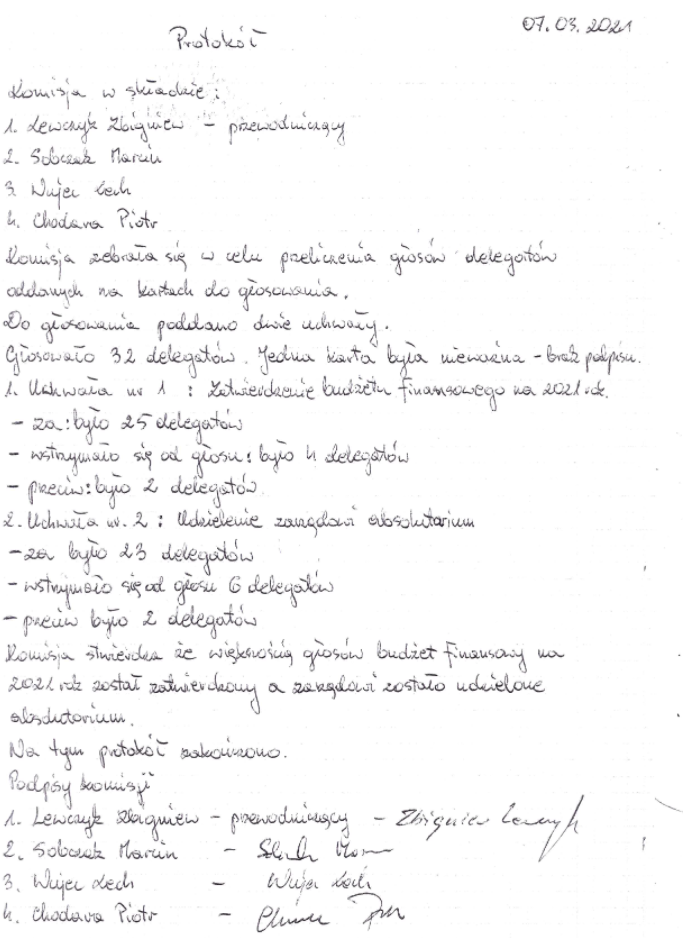 07.03.2021
Protokół
Komisja w składzie:
1. Lewczyk Zbigniew - przewodniczący
2. Sobczak Marcin
3. Wujec Lech
4. Chodara Piotr
Komisja zebrała się w celu przeliczenia głosów delegatów
oddanych na kartach do głosowania.
Do głosowania poddano dwie uchwały.
Głosowało 32 delegatów. Jedna karta była nieważna - brak podpisu.
1. Uchwała nr 1 : Zatwierdzenie budżetu finansowego na 2021 rok.
- za: było 25 delegatów
- wstrzymało się od głosu: było 4 delegatów
- przeciw: było 2 delegatów
2. Uchwała nr. 2 : Udzielenie zarządowi absolutorium
- za było 23 delegatów
- wstrzymało się od głosu 6 delegatów
- przeciw było 2 delegatów
Komisja stwierdza że większością głosów budżet finansowy na
2021 rok został zatwierdzony a zarządowi zostało udzielone
absolutorium.
Na tym protokół zakończono.
Podpisy komisji
1. Lewczyk Zbigniew - przewodniczący - Zbigniew Lewczyk
2. Sobczak Marcin -
3. Wujec Lech - Wujec Lech
4. Chodara Piotr -